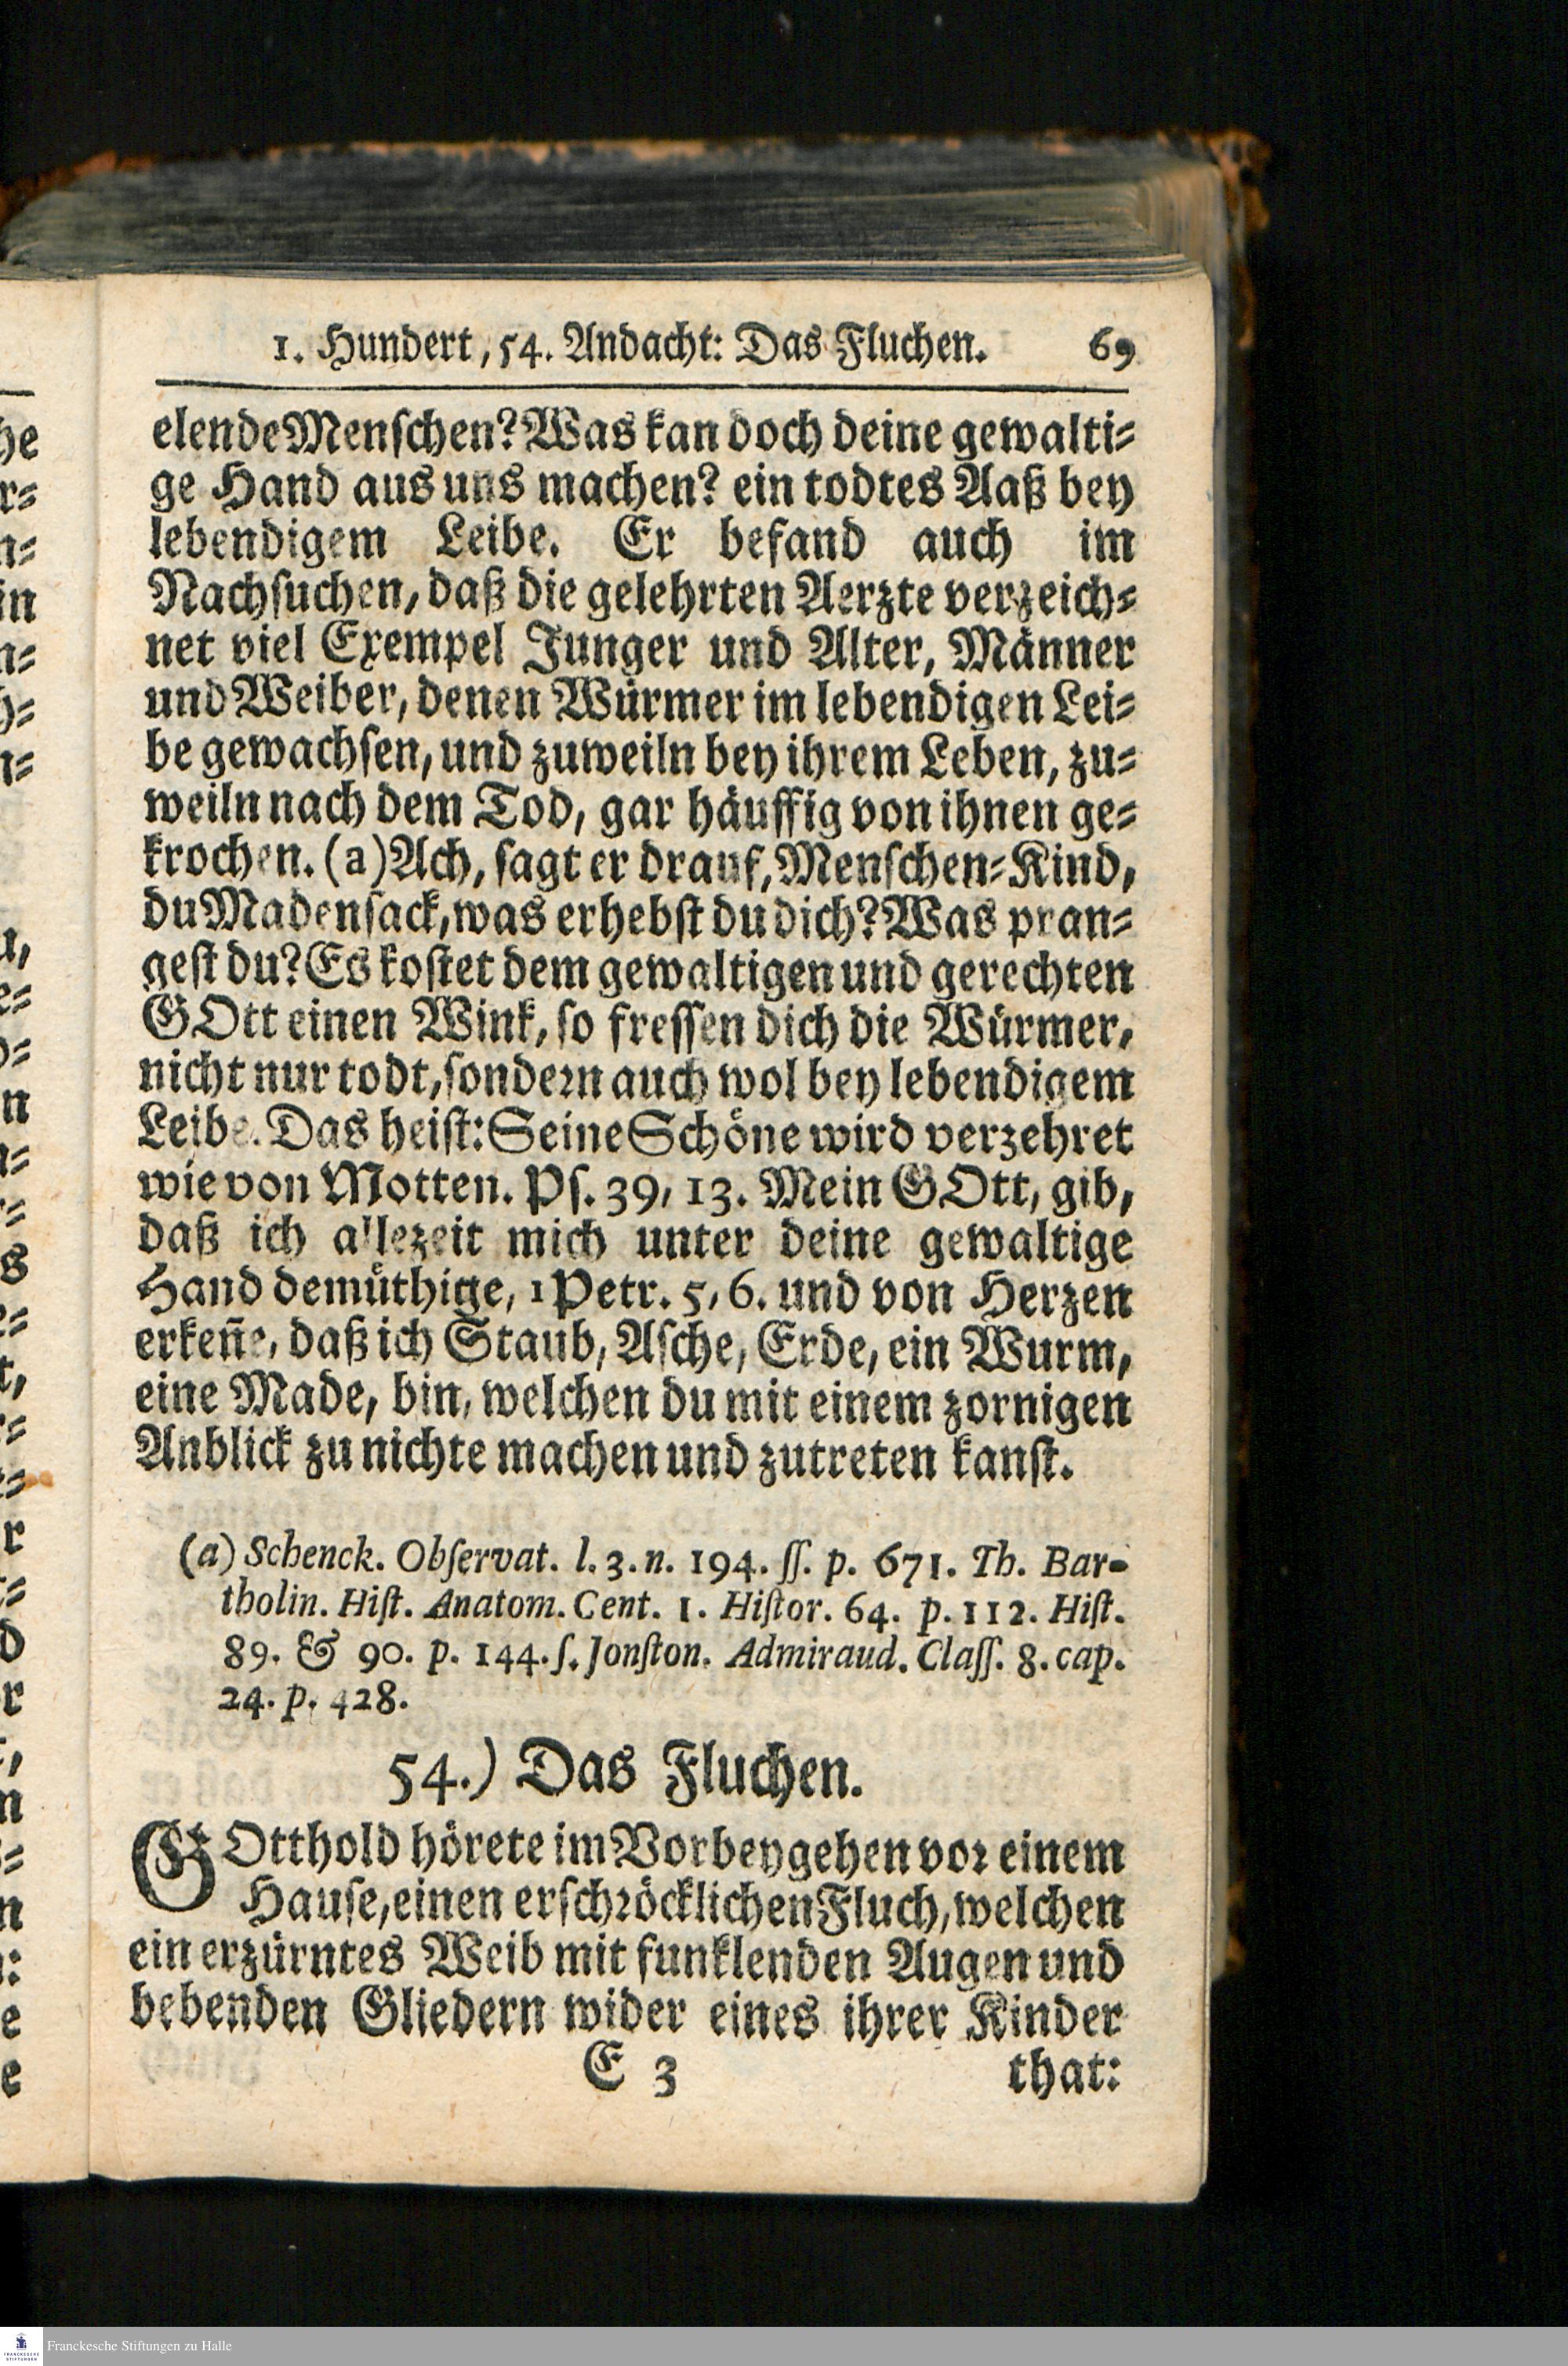 1. Hundert, 54. Andacht: Das Fluchen. 69
elende Menſchen? Was kan doch deine gewalti⸗
ge Hand aus uns machen? ein todtes Aaß bey
lebendigem Leibe. Er befand auch im
Nachſuchen, daß die gelehrten Aerzte verzeich⸗
net viel Exempel Junger und Alter, Männer
und Weiber, denen Würmer im lebendigen Lei⸗
be gewachſen, und zuweiln bey ihrem Leben, zu⸗
weiln nach dem Tod, gar häuffig von ihnen ge⸗
krochen. (a) Ach, ſagt er drauf, Menſchen⸗Kind,
du Madenſack, was erhebſt du dich? Was pran⸗
geſt du? Es koſtet dem gewaltigen und gerechten
GOtt einen Wink, ſo freſſen dich die Würmer,
nicht nur todt, ſondern auch wol bey lebendigem
Leibe. Das heiſt: Seine Schöne wird verzehret
wie von Motten. Pſ. 39, 13. Mein GOtt, gib,
daß ich allezeit mich unter deine gewaltige
Hand demüthige, 1 Petr. 5, 6. und von Herzen
erkeñe, daß ich Staub, Aſche, Erde, ein Wurm,
eine Made, bin, welchen du mit einem zornigen
Anblick zu nichte machen und zutreten kanſt.
(a) Schenck. Obſervat. l. 3. n. 194. ſſ. p. 671. Th. Bar-
tholin. Hiſt. Anatom. Cent. 1. Hiſtor. 64. p. 112. Hiſt.
89. & 90. p. 144. ſ. Jonſton. Admiraud. Claſſ. 8. cap.
24. p. 428.
54.) Das Fluchen.
GOtthold hörete im Vorbeygehen vor einem
Hauſe, einen erſchröcklichen Fluch, welchen
ein erzürntes Weib mit funklenden Augen und
bebenden Gliedern wider eines ihrer Kinder
E 3 that:
Franckesche Stiftungen zu Halle